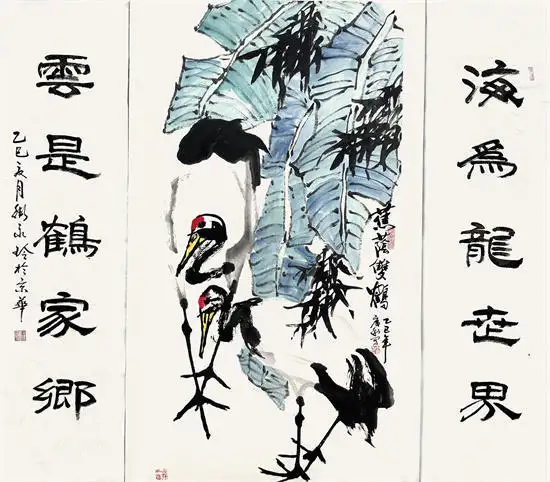 海爲龍世界
蕉蔭雙鶴
乙巳年
雲是鶴家鄉
乙巳亥月 於京華